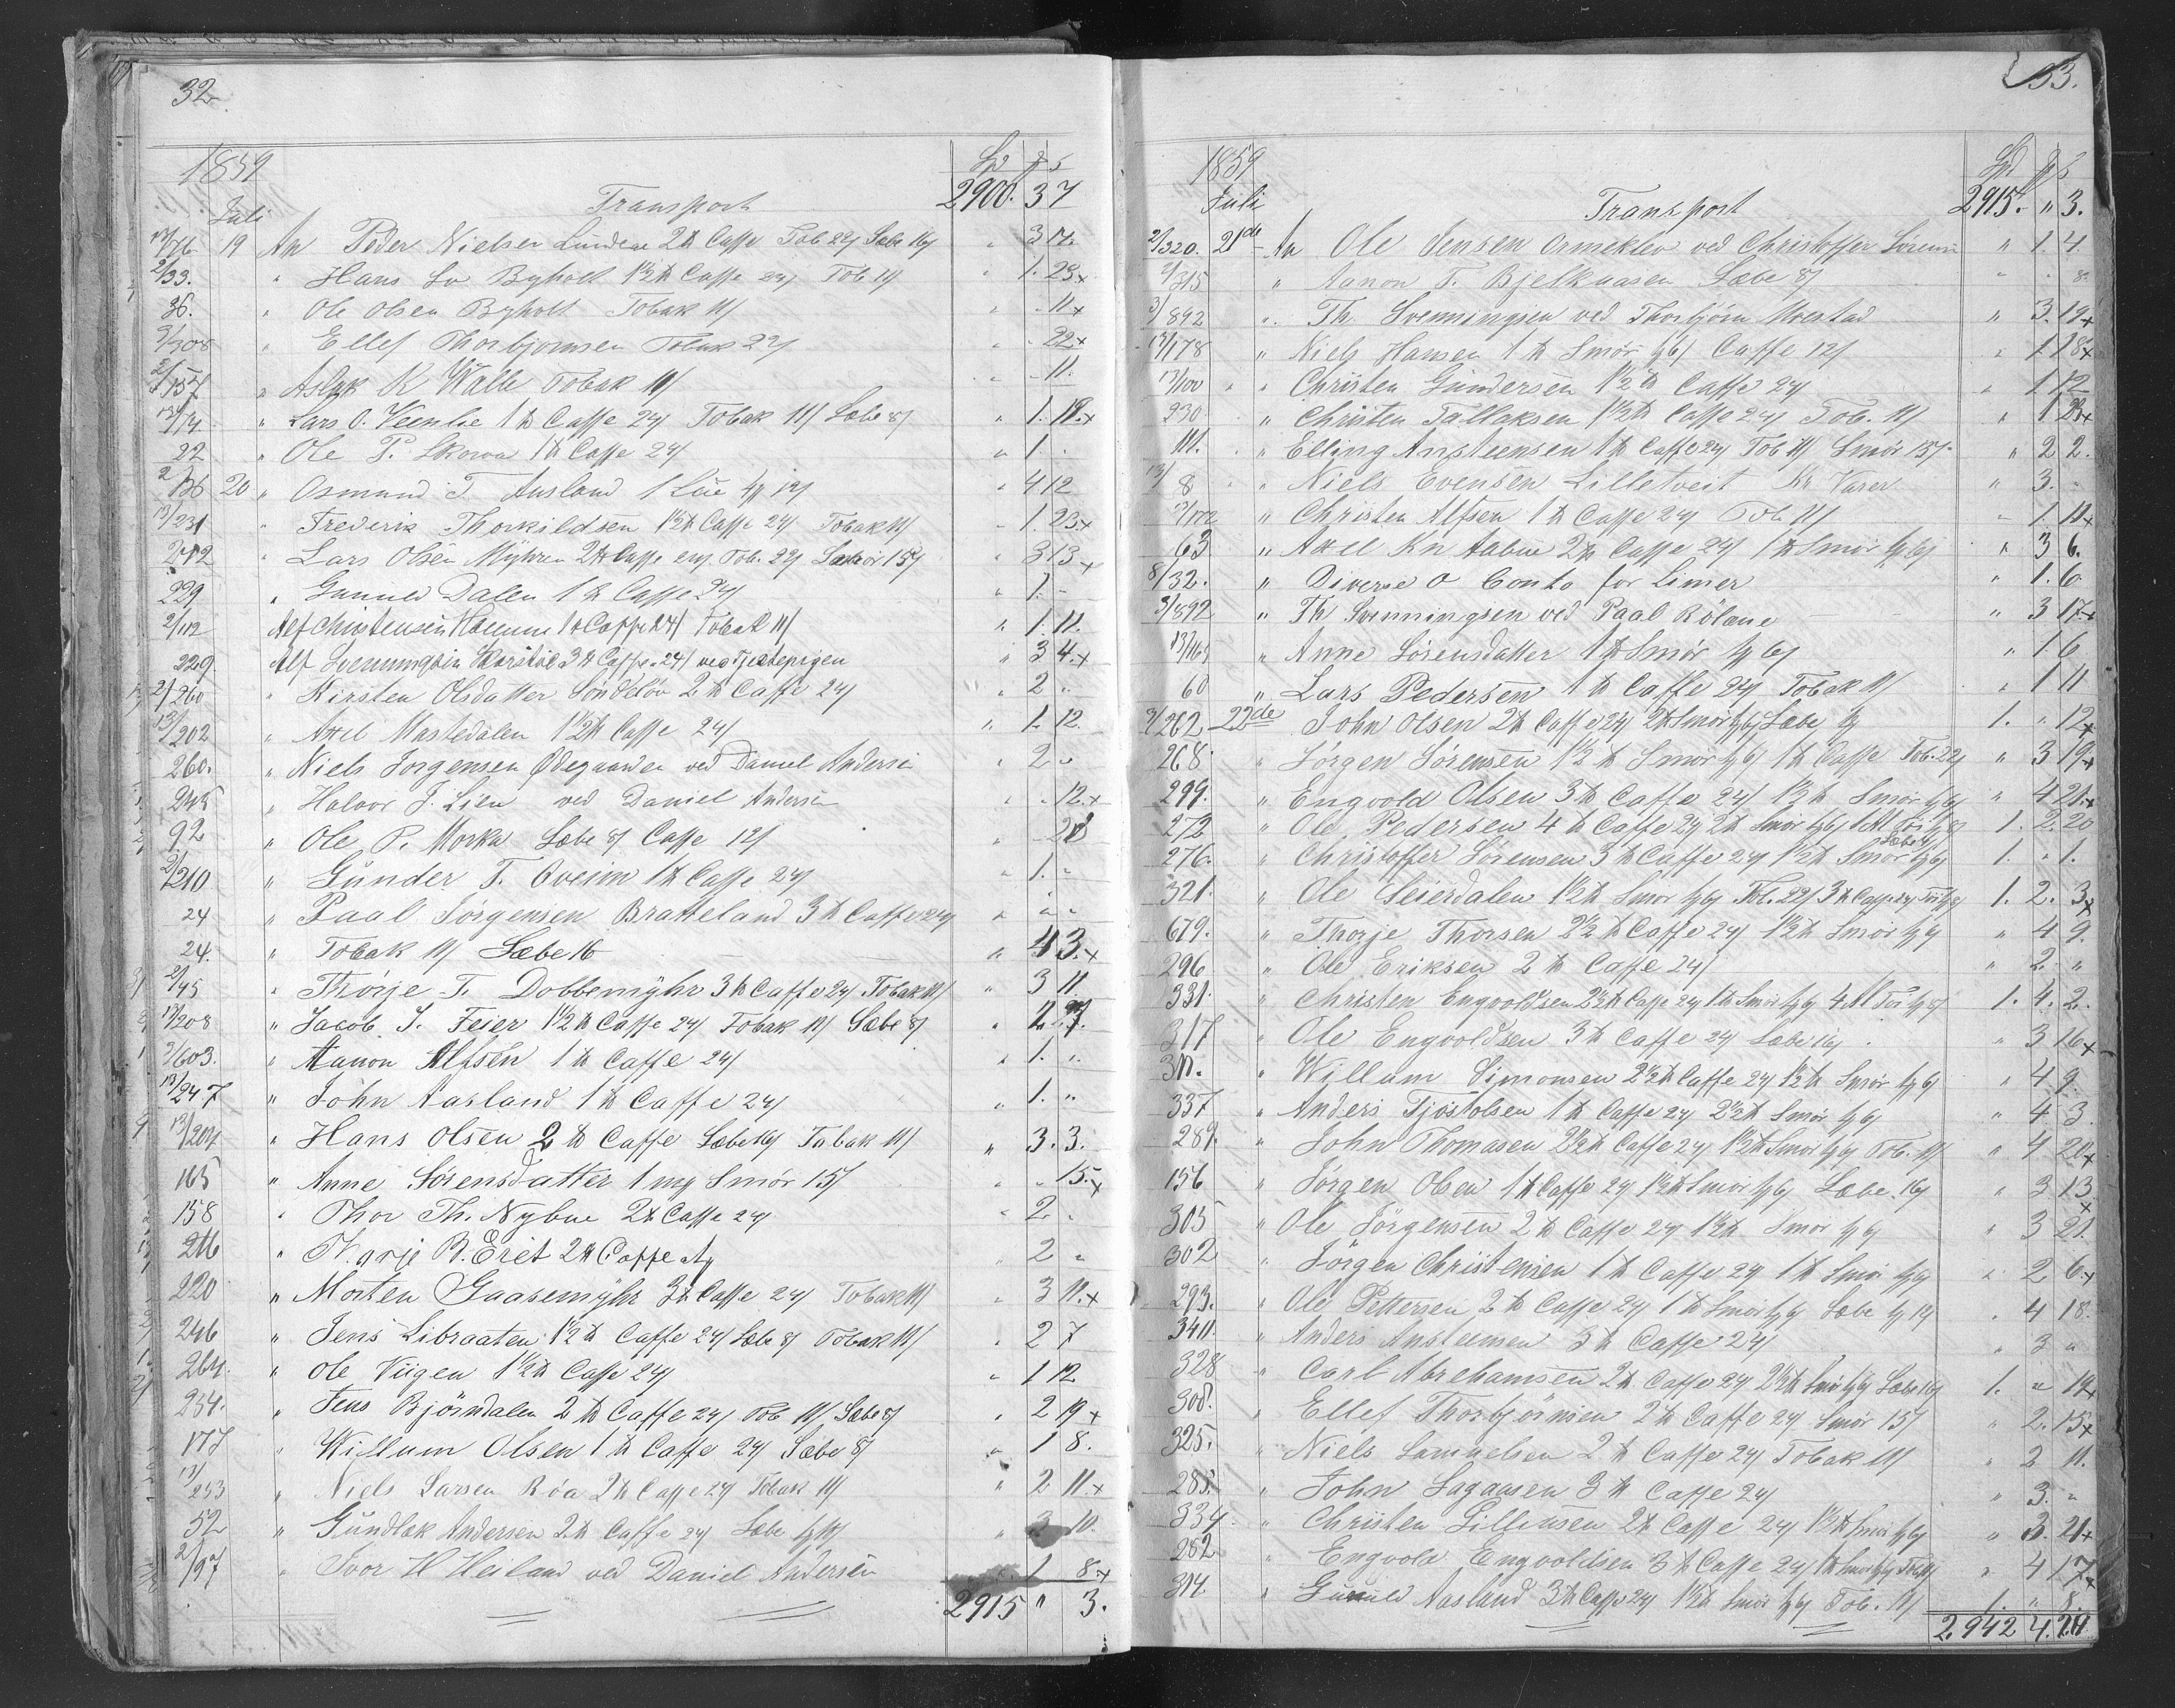 32
1859
Spd # s
Transport 2900. 3 7
Juli
13/76 19 An Peder Nielsen Lundene 2 ℔ Caffe Tob 22/ Sæbe 16/ " 3 17.
2/33. " Hans Byholt 1½ ℔ Caffe 24/ Tob 11/ " 1. 23 x
36. " Ole Olsen Byholt Tobak 11/ " " 11 x
2/308 " Ellef Thorbjornsen Tobak 22/ " " 22 x
2/157 " Aslak K Walle Tobak 11/ " " 11.
13/14 " Lars O. Veenlie 1 ℔ Caffe 24/ Tobak 11/ Sæbe 8/ " 1. 19. x
22 " Ole P. Skowa 1 ℔ Caffe 24/ " 1 "
2/136 20 " Osmund T Ausland 1 12/ " 4 12
13/231 " Frederik Thorkildsen 1½ ℔ Caffe 24/ Tobak 11/ " 1. 23 x
212 " Lars Olsen Myhren 2 ℔ Caffe Tob. 22/ Smør 15/ " 3 13 x
229 " Gunner Dalen 1 ℔ Caffe 24/ " 1. "
2/112 Alf Christensen 1 ℔ Caffe 24/ Tobak 11/ " 1. 11.
229. Alf Svenningsen 3 ℔ Caffe 24/ ved Tjenstepigen " 3 4. x
2/260 " Kirsten Olsdatter Söndeløv 2 ℔ Caffe 24/ " 2 "
13/202 " Axel Mastedalen 1½ ℔ Caffe 24/ " 1. 12.
260. " Niels Jorgensen Ødegaarden ved Daniel Andersen " 2 "
245 " Halvor J. Lien ved Daniel Andersen " " 12. x
92 " Ole P. Morka Sæbe 8/ Caffe 12/ " " 20
2/210 " Gunder T. Oveim 1 ℔ Caffe 24/ " 1. "
24 " Paal Jörgensen Bratteland 3 ℔ Caffe 24/ " " "
24. " Tobak 11/ Sæbe 16 " 4 3. x
2/45 " Thorje T. Dobbemyhr 3 ℔ Caffe 24/ Tobak 11/ " 3 11.
13/208 " Jacob J. Feier 1½ ℔ Caffe 24/ Tobak 11/ Sæbe 8/ " 2 7.
3/603. " Aanon Alfsen 1 ℔ Caffe 24/ " 1. "
13/247 " John Aasland 1 ℔ Caffe 24/ " 1. "
13/204 " Hans Olsen 2 ℔ Caffe Sæbe 16/ Tabak 11/ " 3. 3.
165 " Anne Sörensdatter 1 mg Smör 15/ " " 15. x
158 " Thor Th. Nybue 2 ℔ Caffe 24/ " 2 "
216 " Karje B. Eret 2 ℔ Caffe " 2 "
220 " Morten Gaasemyhr 3 ℔ Caffe 24/ Tobak 11/ " 3 11. x
246 " Jens Libraaten 1½ ℔ Caffe 24/ Sæbe 8/ Tobak 11/ " 2 7
264. " Ole Viigen 1½ ℔ Caffe 24/ " 1 12
234. " Jens Bjørndalen 2 ℔ Caffe 24/ Tob 11/ Sæbe 8/ " 2 19 x
177 " Willum Olsen 1 ℔ Caffe 24/ Sæbe 8/ " 1 8.
13/253 " Niels Larsen Röa 2 ℔ Caffe 24/ Tobak 11/ " 2 11. x
52 " Gundlak Andersen 2 ℔ Caffe 24/ Sæbe " 2 10.
2/197 " Ivor H Heiland ved Daniel Andersen " 1 8. x
2915 " 3.
33.
1859
Spd # s
Juli
Transport 2915. " 3.
2/320. 21de An Ole Jensen Ormeklev ved Christoffer Sörensen " 1. 4.
2/315 " Aanon T. Bjelkaasen Sæbe 8/ " " 8.
3/892 " Th. Svenningsen ved Thorbjörn Moestad " 3. 19 x
13/178 " Niels Hansen 1 ℔ Smör Caffe 12/ " 1. 18 x
13/100 " Christen Gundersen 1½ ℔ Caffe 24/ " 1 12
230 " Christen Tallaksen 1½ ℔ Caffe 24/ Tob. 11/ " 1 23 x
111. " Elling Ansteensen 1 ℔ Caffe 24/ Tob 11/ Smör 15/ " 2 2.
13/8 " Niels Evensen Lilletveit Kr Varer " 3. "
2/172 " Christen Alfsen 1 ℔ Caffe 24/ Tob 11/ " 1. 11 x
63 " Axel Kn Aabue 2 ℔ Caffe 24/ 1 ℔ Smör " 3 6.
8/32. " Diverse o Conto for Limer " 1. 6
3/892 " Th Svenningsen ved Paal Rölane " 3 17 x
13/165 " Anne Sörensdatter 1 ℔ Smör " 1 6
60 " Lars Pedersen 1 ℔ Caffe 24/ Tobak 11/ " 1 11
2/262 22de John Olsen 2 ℔ Caffe 24/ 2 ℔ Smör Sæbe 1. " 12 x
268. " Jörgen Sörensen 1½ ℔ Smör 1 ℔ Caffe Tob. 22/ " 3 19 x
299. " Engvold Olsen 3 ℔ Caffe 24/ 1½ ℔ Smör " 4 21. x
272 " Ole Pedersen 4 ℔ Caffe 24/ 2 ℔ Smör 1. 2. 20
276. " Christoffer Sörensen 3 ℔ Caffe 24/ 1½ ℔ Smör Sæbe 1. " 1.
321. " Ole Seierdalen 1½ ℔ Smör Tob. 22/ 3 ℔ Caffe 24/ 1. 2. 3 x
679. " Thorje Thorsen 2½ ℔ Caffe 24/ 1½ ℔ Smör " 4 9.
296 " Ole Eriksen 2 ℔ Caffe 24/ " 2. "
331. " Christen Engvoldsen 2½ ℔ Caffe 24/ 1 ℔ Smör 1. 4. 2.
317 " Ole Engvoldsen 3 ℔ Caffe 24/ Sæbe 16/ " 3 16 x
311. " Willum Simonsen 2½ ℔ Caffe 24/ 1½ ℔ Smör " 4 9.
337 " Anders Tjöstolsen 1 ℔ Caffe 24/ 2½ ℔ Smör " 4 3.
289. " John Thomasen 2½ ℔ Caffe 24/ 1½ ℔ Smör Tob. 11/ " 4 20 x
156 " Jörgen Olsen 1 ℔ Caffe 24/ 1½ ℔ Smör Sæbe 16/ " 3 13 x
305 " Ole Jörgensen 2 ℔ Caffe 24/ 1½ ℔ Smör " 3 21.
302 " Jörgen Christensen 1 ℔ Caffe 24/ 1 ℔ Smör " 2 6 x
293. " Ole Pettersen 2 ℔ Caffe 24/ 1 ℔ Smör Sæbe " 4 18.
3411. " Anders Ansteensen 3 ℔ Caffe 24/ " 3 "
328 " Carl Abrehamsen 2 ℔ Caffe 24/ 2½ ℔ Smör Sæbe 16/ 1. " 19 x
308. " Ellef Thorbjörnsen 2 ℔ Caffe 24/ Smör 15/ " 2. 15 x
325. " Niels Samuelsen 2 ℔ Caffe 24/ Tobak 11/ " 2 11.
285. " John Sagaasen 3 ℔ Caffe 24/ " 3. "
334 " Christen Gillensen 2 ℔ Caffe 24/ 1½ ℔ Smör " 3. 21 x
282 " Engvold Engvoldsen 3 ℔ Caffe 24/ 1 ℔ Smör " 4 17 x
314. " Gunuld Aasland 3 ℔ Caffe 24/ 1½ ℔ Smör Tob. 11/ 1. " 8.
2.942 4. 21.